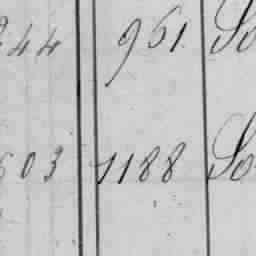 44 961 So
03 1188 So